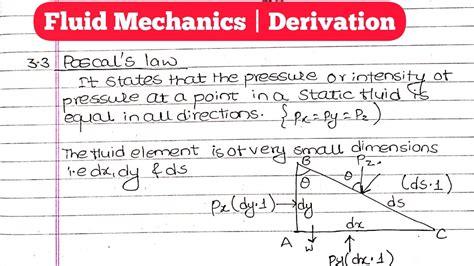 Fluid Mechanics | Derivation
3.3 Pascal's law
It states that the pressure or intensity of
pressure at a point in a static fluid is
equal in all directions. {Px = Py = Pz}
The fluid element is of very small dimensions
i.e dx, dy & ds
B
Pz
θ
θ
(ds.1)
Px(dy.1)
dy
ds
dx
A
W
C
Py(dx.1)